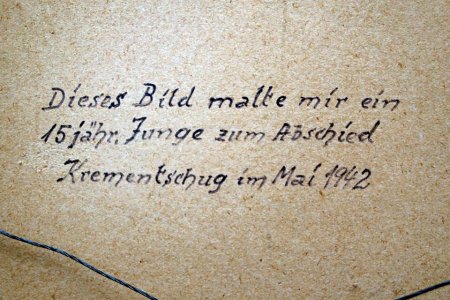 Dieses Bild malte mir ein
15jähr. Junge zum Abschied
Krementschug im Mai 1942